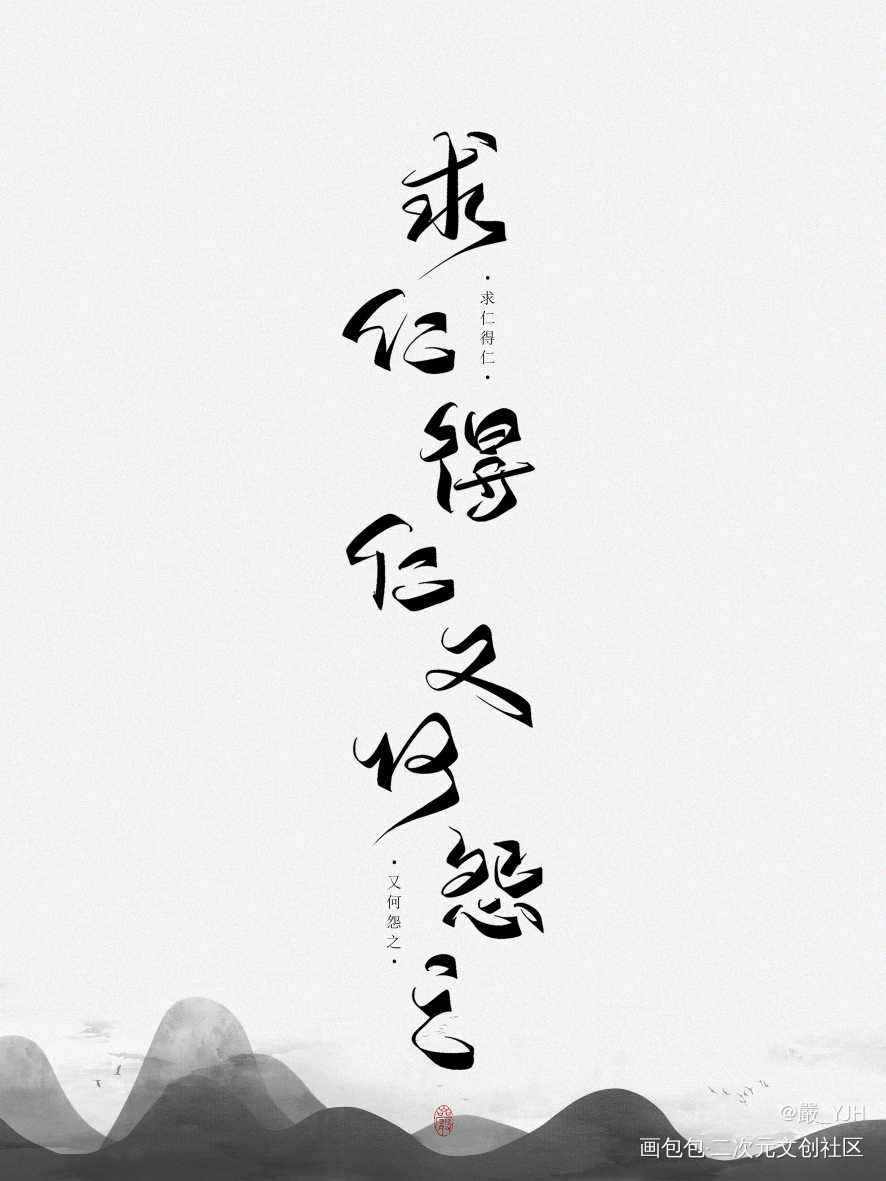 求仁得仁又何怨之
·求仁得仁·
·又何怨之·
@嚴_YJH
画包包·二次元文创社区